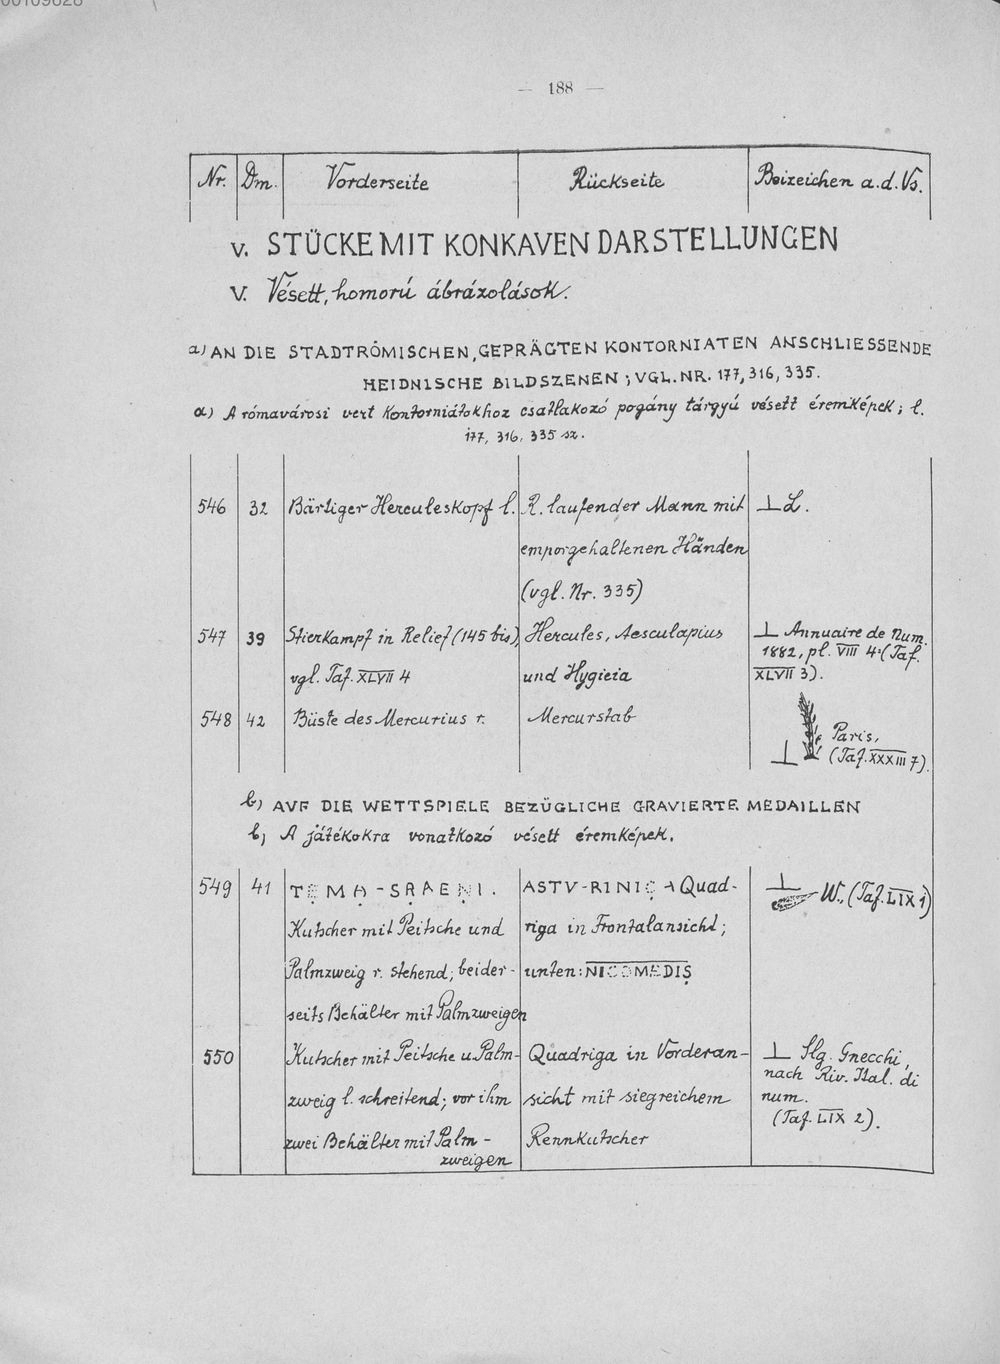 00109628
— 188 —
Nr. Dm. Vorderseite Rückseite Beizeichen a.d. Vs.
V. STÜCKE MIT KONKAVEN DARSTELLUNGEN
V. Vésett, homorú ábrázolások.
a) AN DIE STADTRÖMISCHEN, GEPRÄGTEN KONTORNIATEN ANSCHLIESSENDE
HEIDNISCHE BILDSZENEN; VGL. NR. 177, 316, 335.
a) A rómavárosi vert kontorniátokhoz csatlakozó pogány tárgyú vésett éremképek; l.
177, 316, 335 sz.
546 32 Bärtiger Herculeskopf l. R. laufender Mann mit ⊥ L.
emporgehaltenen Händen
(vgl. Nr. 335)
547 39 Stierkampf in Relief (145 bis), Hercules, Aesculapius ⊥ Annuaire de Num.
1882, pl. VIII 4. (Taf.
vgl. Taf. XLVII 4 und Hygieia XLVII 3).
548 42 Büste des Mercurius r. Mercurstab ⊥ Paris,
(Taf. XXXIII 7).
b) AUF DIE WETTSPIELE BEZÜGLICHE GRAVIERTE MEDAILLEN
b) A játékokra vonatkozó vésett éremképek.
549 41 TEMA-SRAENI. ASTV-RINIC-A Quad- ⊥ W., (Taf. LIX 1)
Kutscher mit Peitsche und riga in Frontalansicht;
Palmzweig r. stehend; beider- unten: NICOMEDIS
seits Behälter mit Palmzweigen
550 Kutscher mit Peitsche u. Palm- Quadriga in Vorderan- ⊥ Slg. Gnecchi,
nach Riv. Ital. di
zweig l. schreitend; vor ihm sicht mit siegreichem num.
(Taf. LIX 2).
zwei Behälter mit Palm- Rennkutscher
zweigen